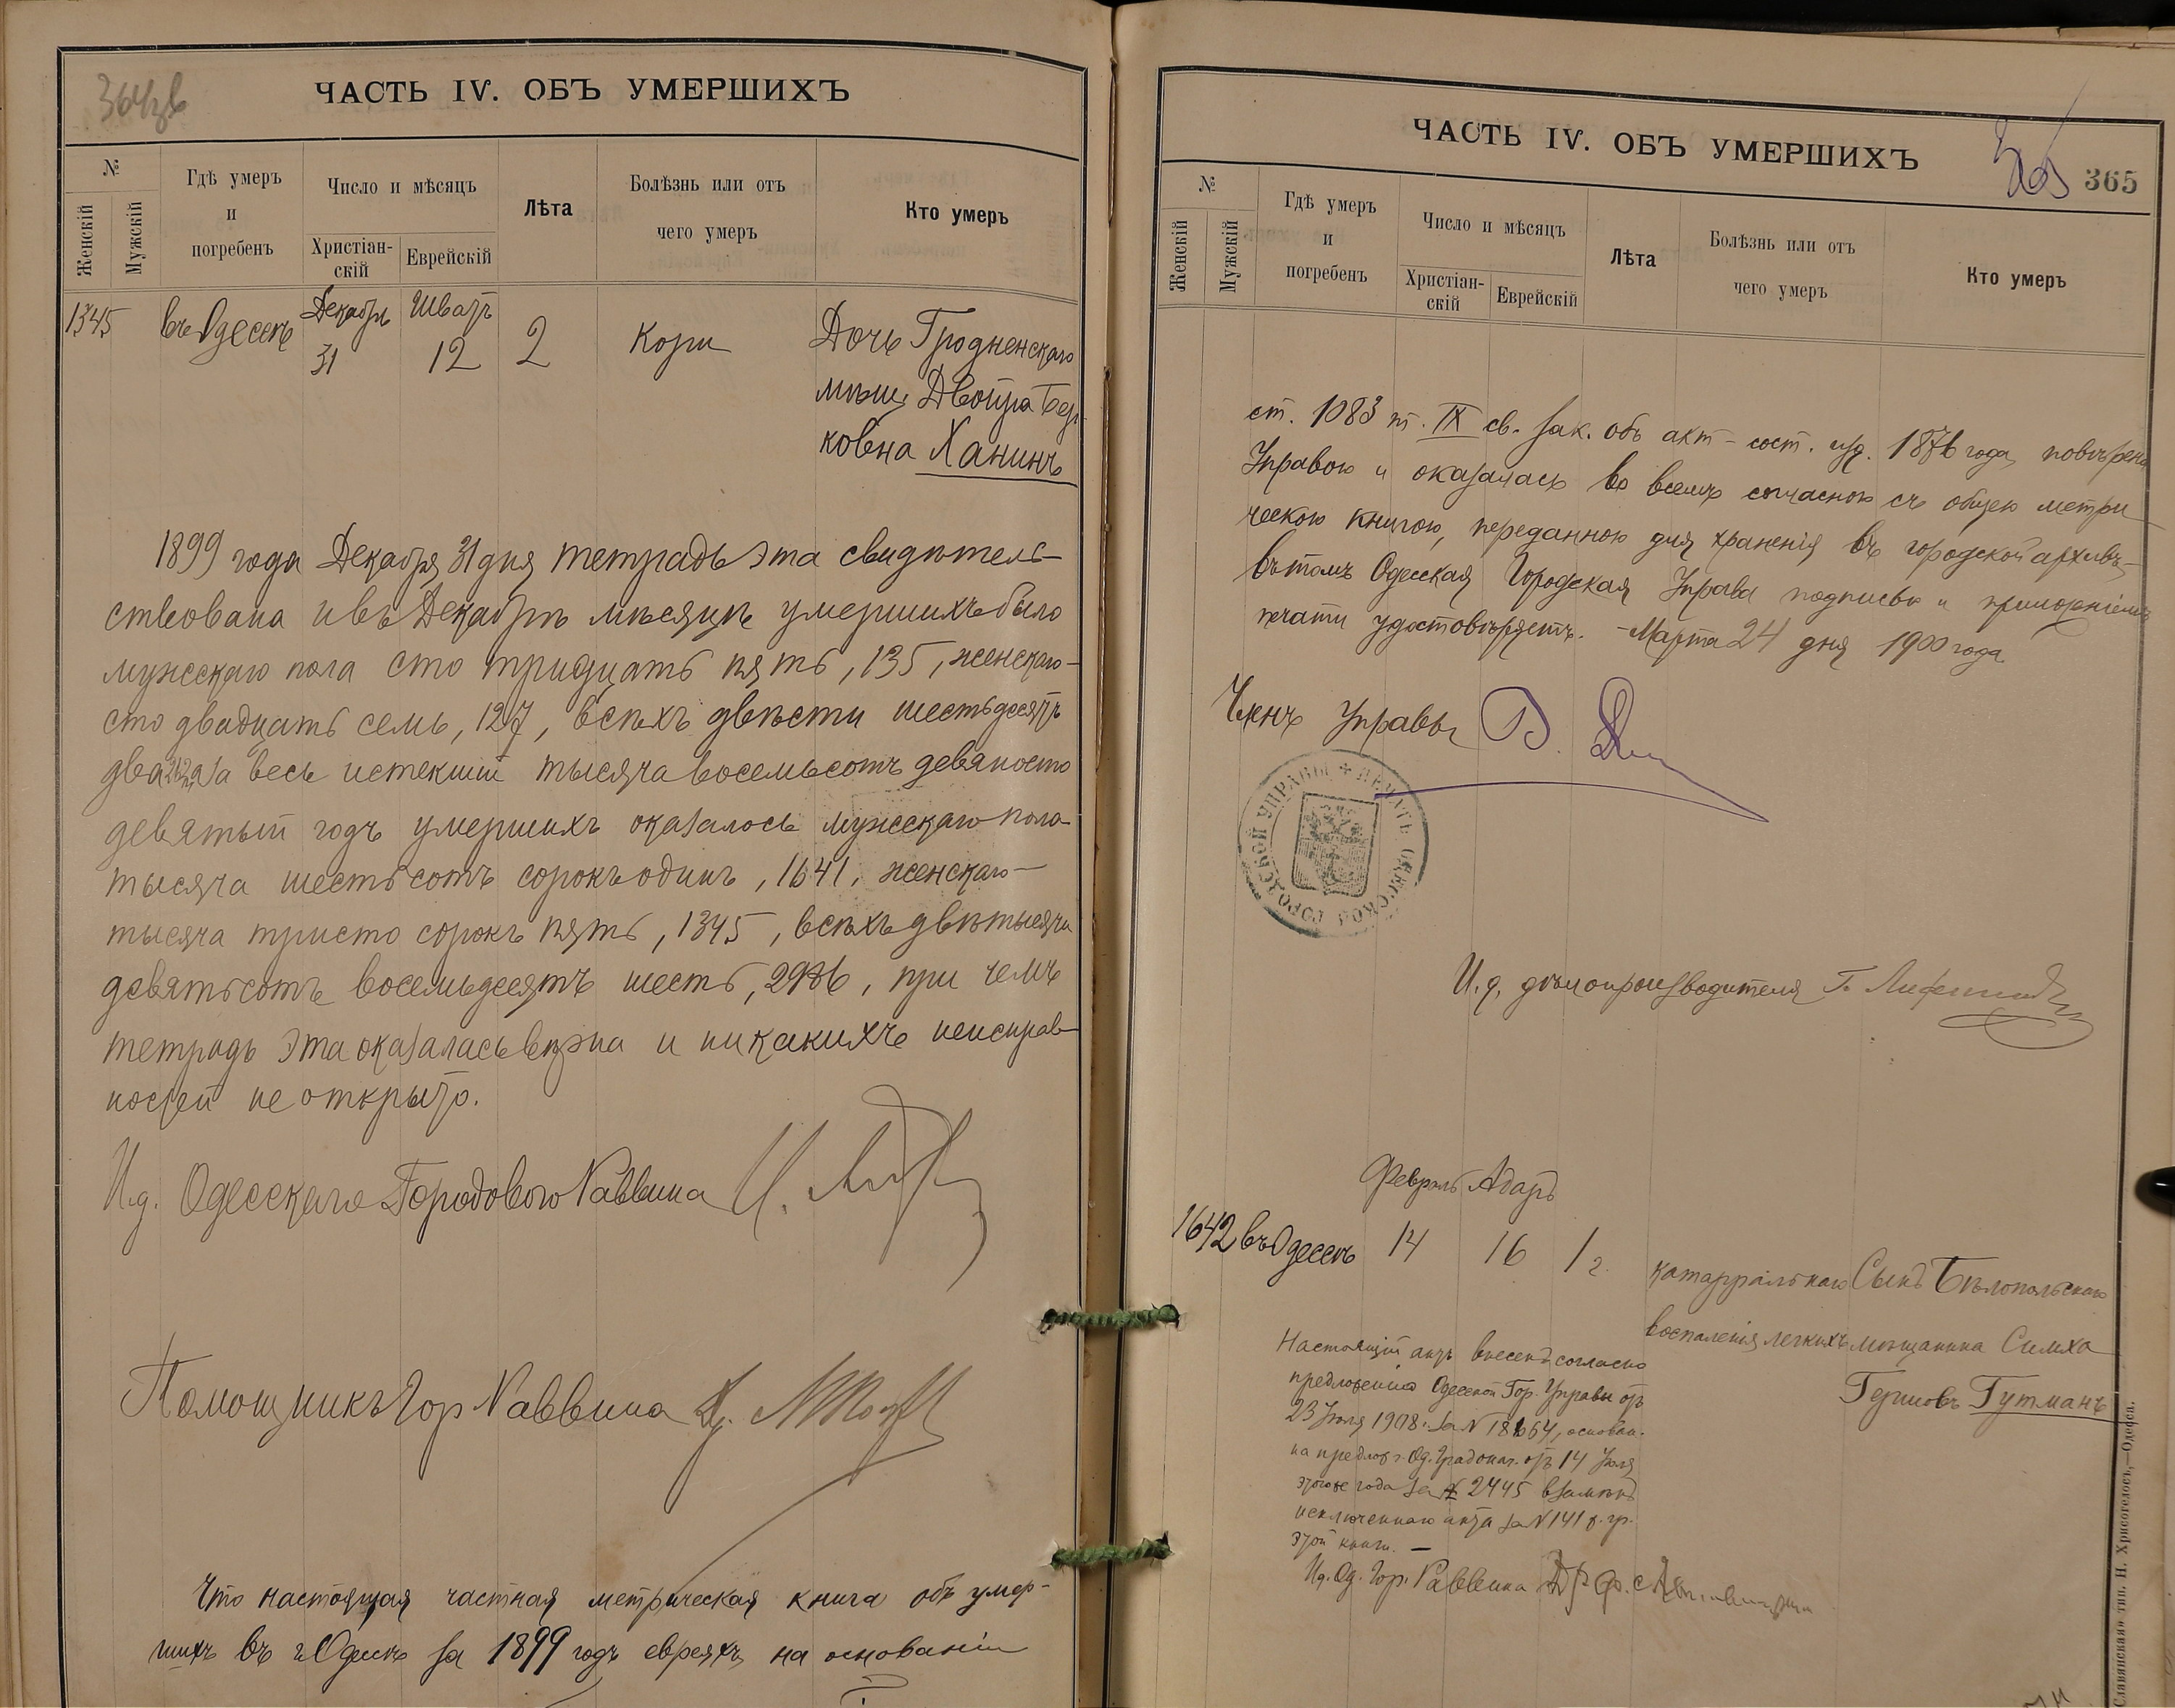 364 об
ЧАСТЬ IV. ОБЪ УМЕРШИХЪ
№
Женскій
Мужскій
Гдѣ умеръ
и
погребенъ
Число и мѣсяцъ
Христіан-
скій
Еврейскій
Лѣта
Болѣзнь или отъ
чего умеръ
Кто умеръ
1345
въ Одессѣ
Декабрь
31
Шватъ
12
2
Кори
Дочь Гродненскаго
мѣщ. Двойра Бер-
ковна Ханинъ
1899 года Декабря 31 дня тетрадь эта свидѣтель-
ствована и въ Декабрѣ мѣсяцѣ умершихъ было
мужескаго пола сто тридцать пять, 135, женскаго-
сто двадцать семь, 127, всѣхъ двѣсти шестьдесятъ
два 262, а за весь истекшій тысяча восемьсотъ девяносто
девятый годъ умершихъ оказалось мужескаго пола
тысяча шестьсотъ сорокъ одинъ, 1641, женскаго-
тысяча триста сорокъ пять, 1345, всѣхъ двѣ тысячи
девятьсотъ восемьдесятъ шесть, 2986, при чемъ
тетрадь эта оказалась вѣрна и никакихъ неисправ-
ностей не открыто.
И.д. Одесскаго Городового Раввина
Помощникъ Гор Раввина
Что настоящая частная метрическая книга объ умер-
шихъ въ г. Одессѣ за 1899 годъ евреяхъ, на основаніи
ЧАСТЬ IV. ОБЪ УМЕРШИХЪ
365
365
№
Женскій
Мужскій
Гдѣ умеръ
и
погребенъ
Число и мѣсяцъ
Христіан-
скій
Еврейскій
Лѣта
Болѣзнь или отъ
чего умеръ
Кто умеръ
ст. 1083 т. IX св. зак. объ акт. сост. изд. 1876 года, повѣрена
Управою и оказалась во всемъ согласною съ общею метри
ческою книгою, переданною для храненія въ городской архивъ,-
въ томъ Одесская Городская Управа подписью и приложеніемъ
печати удостовѣряетъ. - Марта 24 дня 1900 года
Членъ Управы
ПЕЧАТЬ ОДЕССКОЙ ГОРОДСКОЙ УПРАВЫ
И. д. дѣлопроизводителя
Февраль Адаръ
1642 въ Одессѣ 14 16 1 г.
катарральнаго
воспаленія легкихъ
Сынъ Бѣлопольскаго
мѣщанина Симха
Гершовъ Гутманъ
Настоящій актъ внесенъ согласно
предложенію Одесской Гор. Управы отъ
23 Іюля 1908 г. за № 18664, основан.
на предлож. Од. Градонач. отъ 14 Іюля
этого же года за № 2445 взамѣнъ
исключеннаго акта за № 141 ж. гр.
этой книги. —
И.д. Од. Гор. Раввина
Славянская тип. Н. Хрисогелосъ,—Одесса.